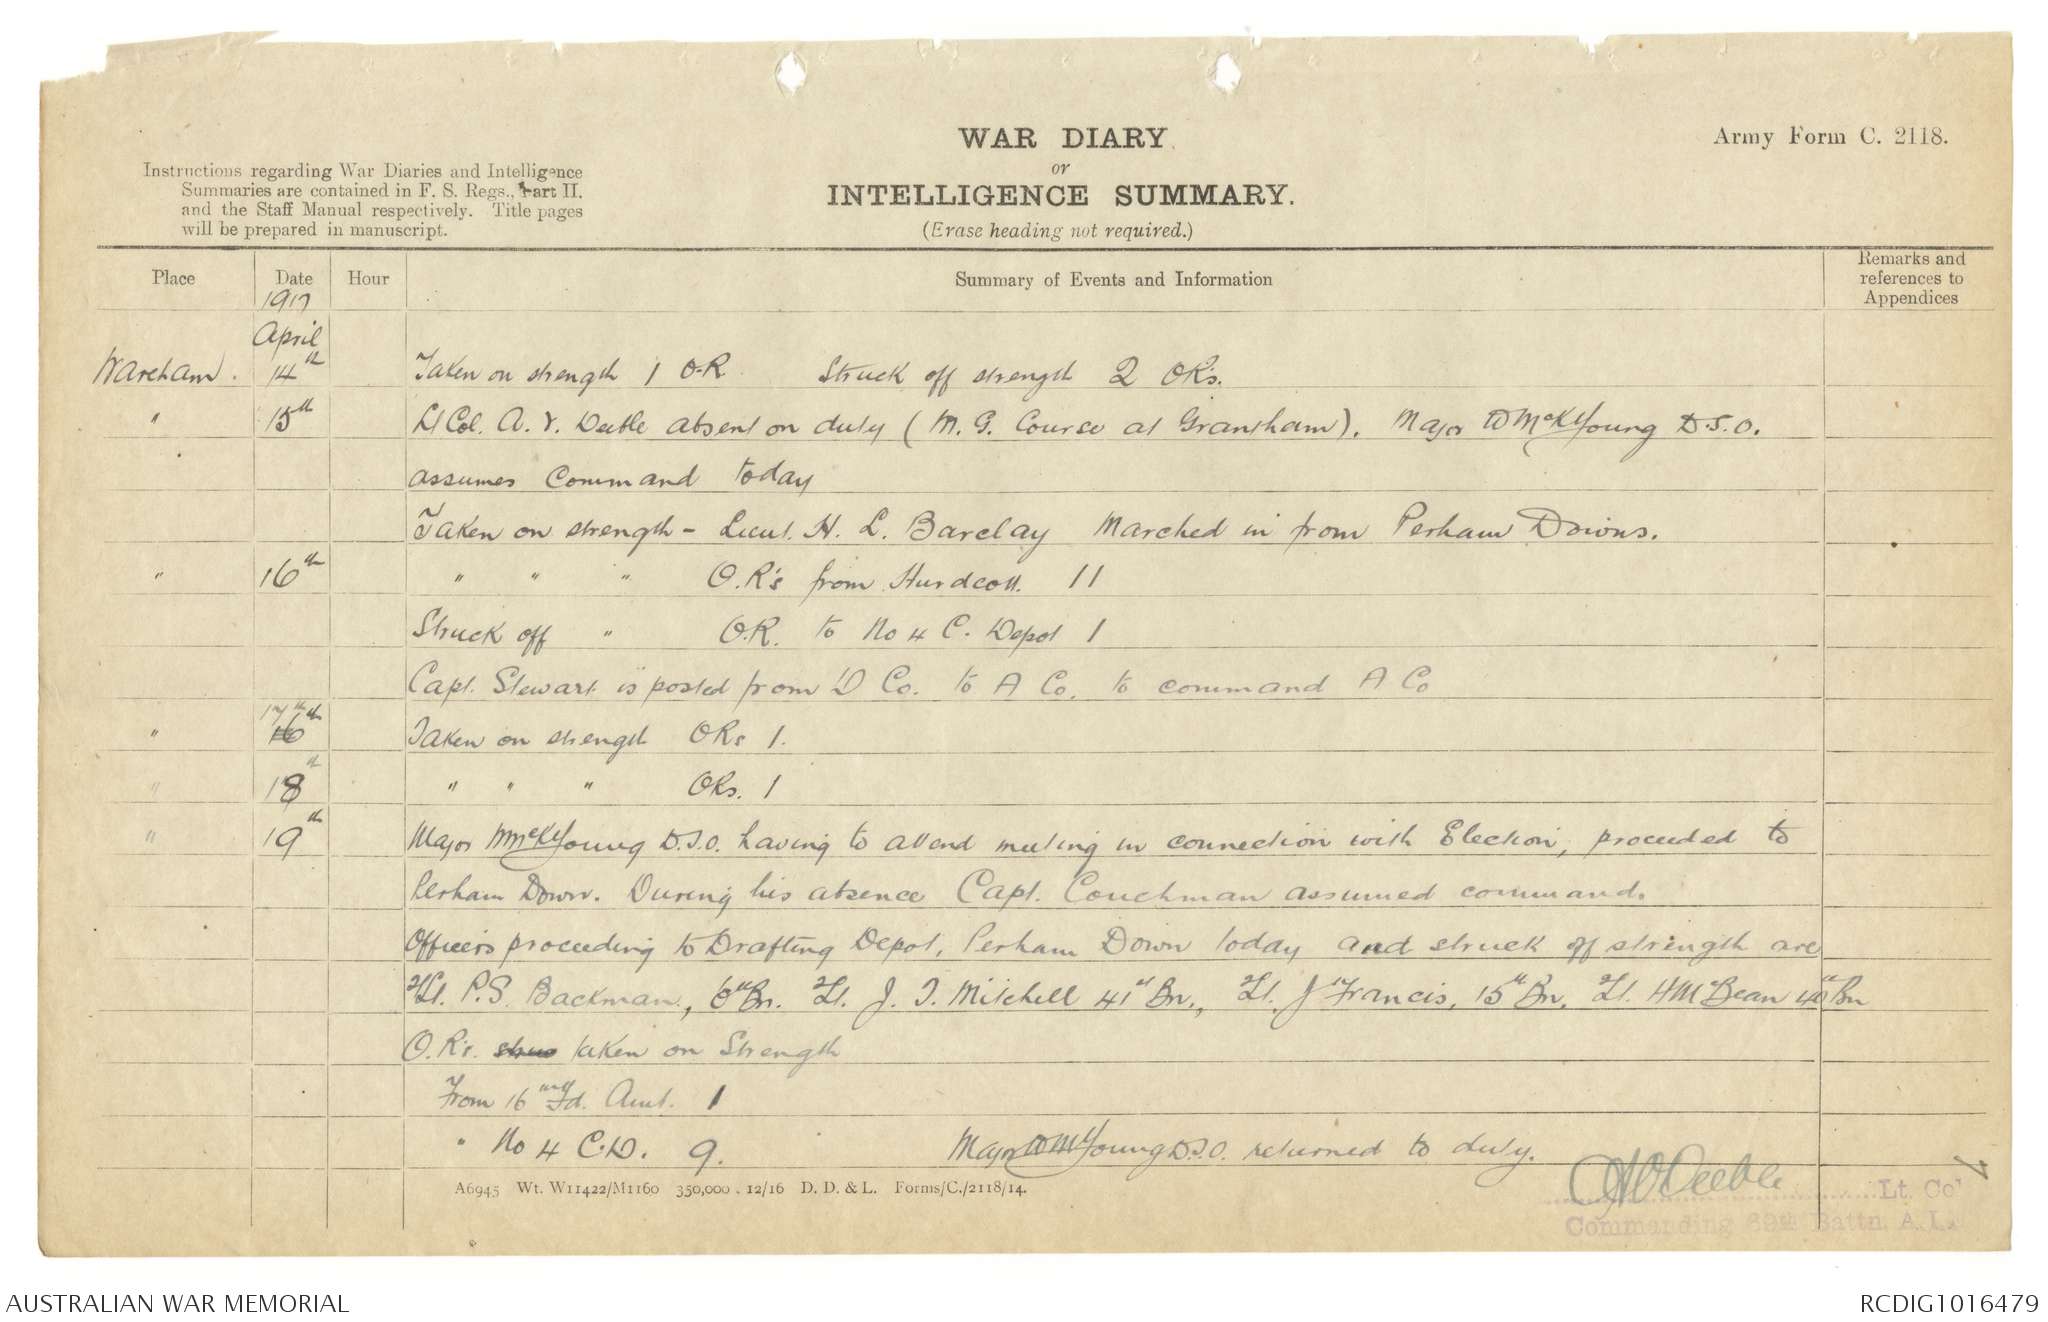 WAR DIARY
or
INTELLIGENCE SUMMARY.
(Erase heading not required.)
Army Form C. 2118.
Instructions regarding War Diaries and Intelligence
Summaries are contained in F. S. Regs., Part II.
and the Staff Manual respectively. Title pages
will be prepared in manuscript.
Place Date Hour Summary of Events and Information Remarks and references to Appendices
1917
April
Wareham. 14th Taken on strength 1 O.R. Struck off strength 2 OR's.
" 15th Lt Col. A. V. Deeble absent on duty (M. G. Course at Grantham). Major W McKYoung D.S.O.
assumes Command today
Taken on strength - Lieut. H. L. Barclay Marched in from Perham Downs.
" 16th " " " O.R's from Hurdcott. 11
Struck off " O.R. to No 4 C. Depot 1
Capt. Stewart is posted from D Co. to A Co. to command A Co
" 17th 16th Taken on strength ORs 1.
" 18th " " " ORs. 1
" 19th Major WMcKYoung D.S.O. having to attend meeting in connection with Election, proceeded to
Perham Down. During his absence Capt. Couchman assumed command.
Officers proceeding to Drafting Depot, Perham Down today and struck off strength are
2/Lt. P.S. Backman, 6th Bn. 2/Lt. J. T. Mitchell 41st Bn., 2/Lt. J Francis, 15th Bn, 2/Lt. HM Bean 40th Bn
O.R's. taken on Strength
From 16th Fd. Amb. 1
" No 4 C.D. 9. Major WMYoung D.S.O. returned to duty.
A V Deeble Lt. Col
Commanding 69th Battn. A.I.
A6945 Wt. W11422/M1160 350,000 12/16 D. D. & L. Forms/C./2118/14.
AUSTRALIAN WAR MEMORIAL
RCDIG1016479